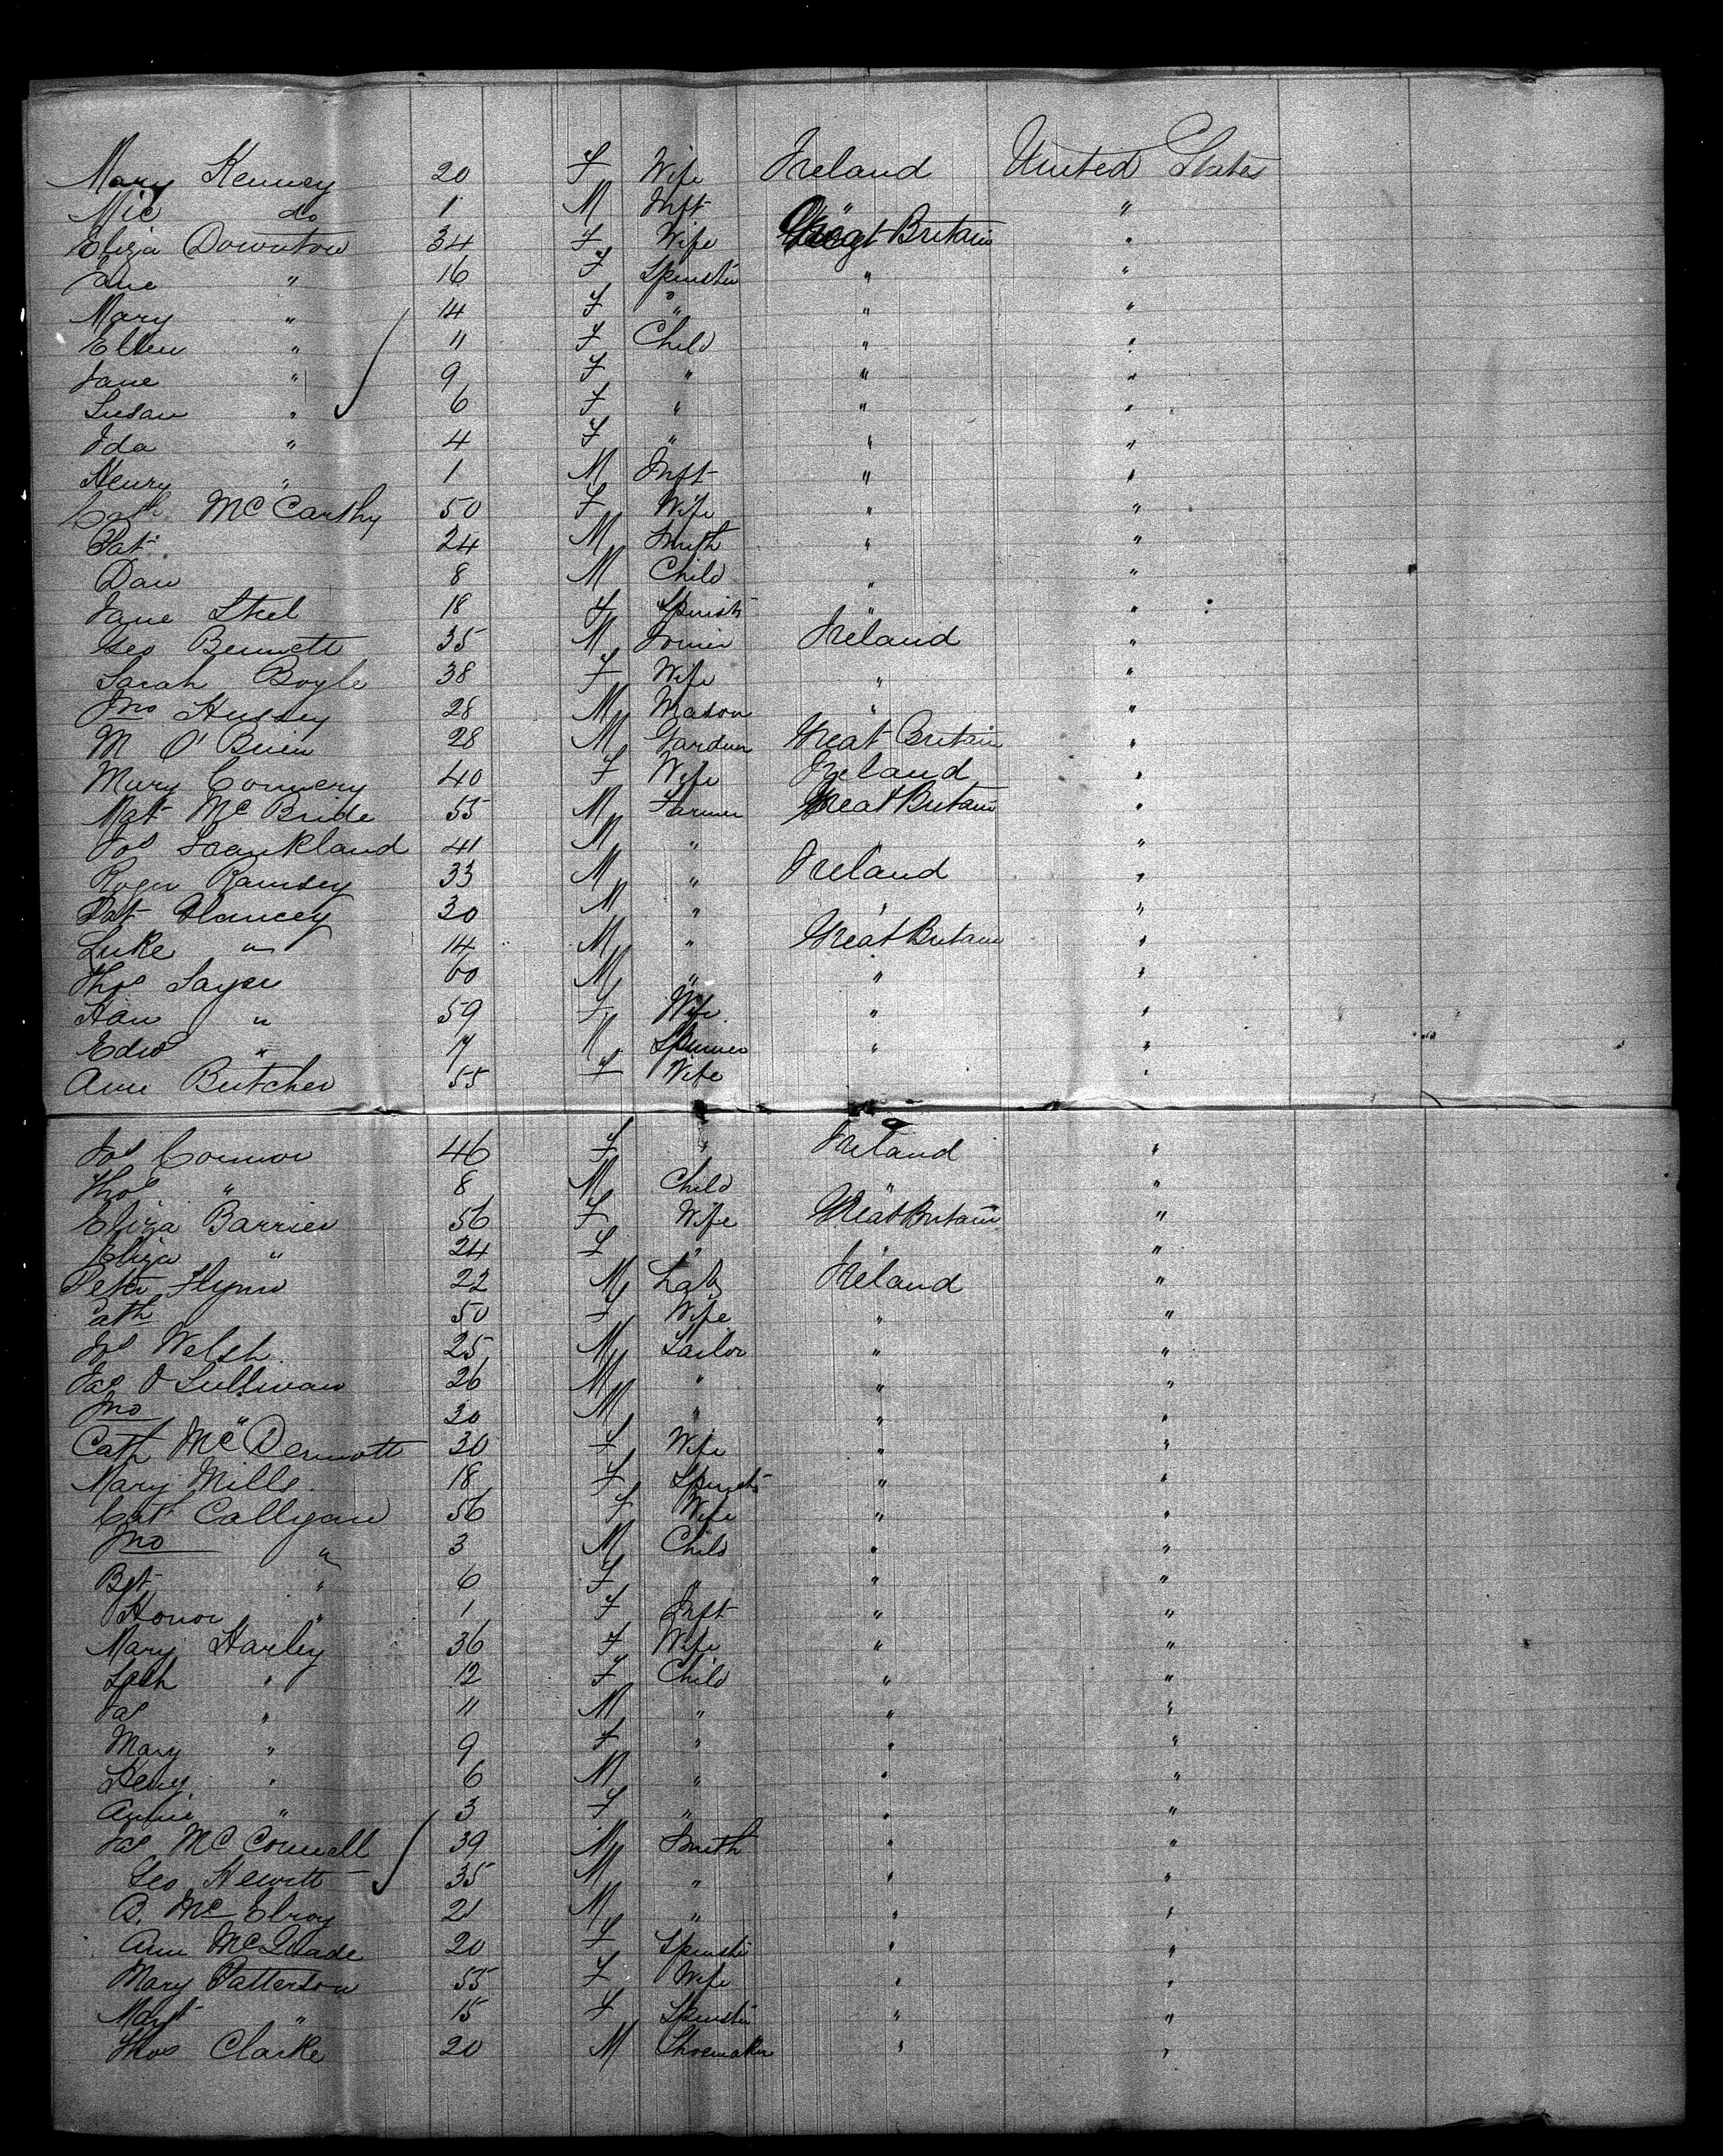 Mary Kenney 20 F Wife Ireland United States
Mic do 1 M Inft " "
Eliza Downton 34 F Wife Great Britain "
Jane " 16 F Spinster " "
Mary " 14 F " " "
Ellen " 11 F Child " "
Jane " 9 F " " "
Susan " 6 F " " "
Ida " 4 F " " "
Henry " 1 M Inft " "
Cath McCarthy 50 F Wife " "
Pat 24 M Smith " "
Dan 8 M Child " "
Jane Steel 18 F Spinstr " "
Geo Bennett 35 M Joiner Ireland "
Sarah Boyle 38 F Wife " "
Jno Hussey 28 M Mason " "
M O'Brien 28 M Gardner Great Britain "
Mary Connery 40 F Wife Ireland "
Mat McBride 55 M Farmer Great Britain "
Jos Frankland 41 M " "
Roger Ramsey 33 M " Ireland "
Pat Clancey 30 M " " "
Luke " 14 M " Great Britain "
Thos Sayer 60 M " " "
Han " 59 F Wife " "
Edwd " 17 M Spinner " "
Ann Butcher 55 F Wife "
Jos Connor 46 F " Ireland "
Thos " 8 M Child " "
Eliza Barrier 56 F Wife Great Britain "
Eliza " 24 F " " "
Peter Flynn 22 M Labr Ireland "
Cath 50 F Wife " "
Jos Welsh 25 M Tailor " "
Jas O Sullivan 26 M " " "
Jno " 20 M " " "
Cath McDermott 30 F Wife " "
Mary Mills 18 F Spinstr " "
Cat Calligan 56 F Wife " "
Jno " 3 M Child " "
Bgt " 6 F " " "
Honor " 1 F Inft " "
Mary Harley 36 F Wife " "
Cath " 12 F Child " "
Jas " 11 M " " "
Mary " 9 F " " "
Henry " 6 M " " "
Annie " 3 F " " "
Jas McConnell 39 M Smith " "
Geo Hewitt 35 M " " "
A. McElroy 21 M " " "
Ann McQuade 20 F Spinster " "
Mary Patterson 55 F Wife " "
Margt " 15 F Spinster " "
Thos Clarke 20 M Shoemaker " "